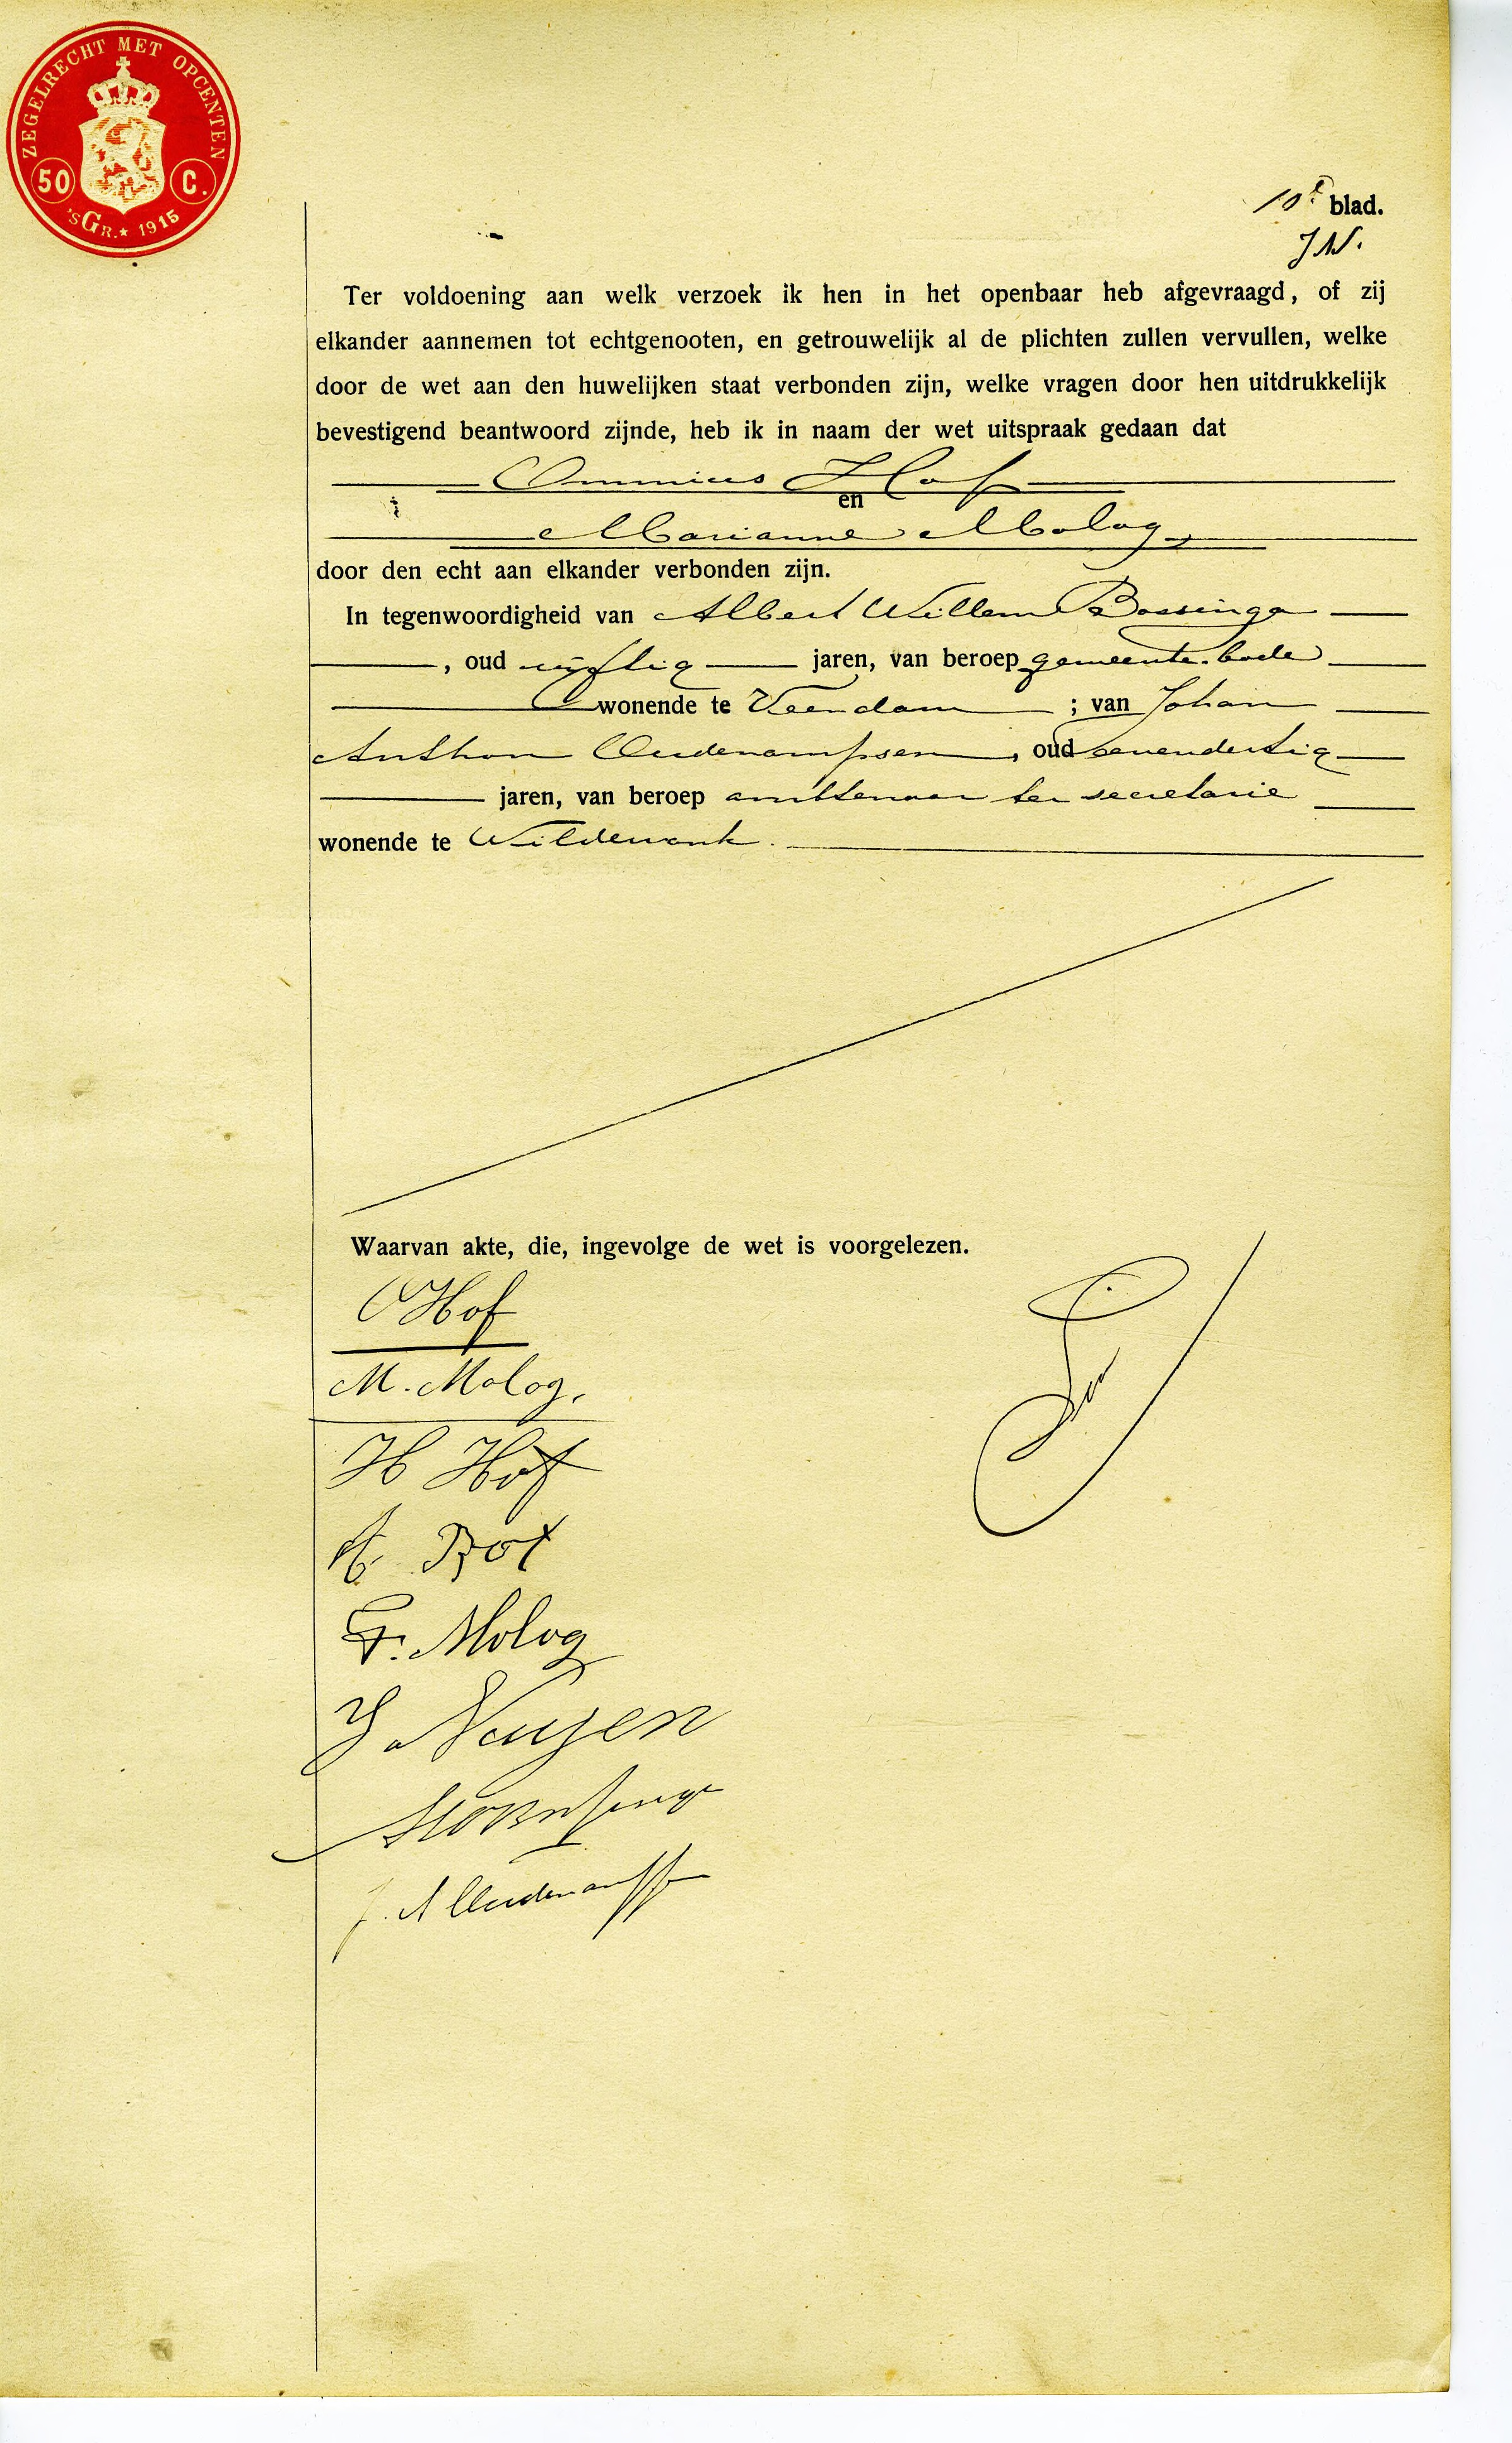 ZEGELRECHT MET OPCENTEN
50 C.
'SGR.★ 1915
10e blad.
J N.
Ter voldoening aan welk verzoek ik hen in het openbaar heb afgevraagd, of zij
elkander aannemen tot echtgenooten, en getrouwelijk al de plichten zullen vervullen, welke
door de wet aan den huwelijken staat verbonden zijn, welke vragen door hen uitdrukkelijk
bevestigend beantwoord zijnde, heb ik in naam der wet uitspraak gedaan dat
Ommius Hof
en
Marianne Molog
door den echt aan elkander verbonden zijn.
In tegenwoordigheid van Albert Willem Bossinga
, oud vijftig jaren, van beroep gemeente-bode
wonende te Veendam ; van Johan
Anthon Oudenampsen, oud zevendertig
jaren, van beroep ambtenaar ter secretarie
wonende te Wildervank.
Waarvan akte, die, ingevolge de wet is voorgelezen.
O Hof
M. Molog.
H Hof
Bot
F. Molog
J Nuijen
J. A Oudenampsen